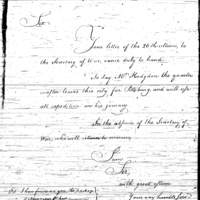 Sir.
Your letter of the 26th ultimo, to
the Secretary of War, came duly to hand.
To day Mr. Hodgdon the quarter
master leaves this city for Pittsburg and will use
all expedition on his journey
In the absence of the Secretary of
War, who will return to morrow
I am
Sir,
with great esteem
Your very humble Serv